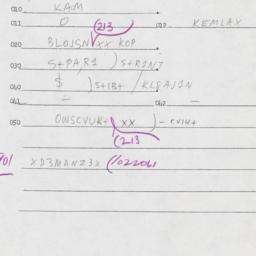 010 KAM
011 0 (213 012 KEMLAX
020 BLOJSN XX KOP
030 S+PAR1 )S+R1NJ
040 $ )S+1B+ / KLSAJ1N
041 – 042 –
050 OWSCVUK+ XX )– CV1K+
(213
901 XD3MANZ3X (1022061